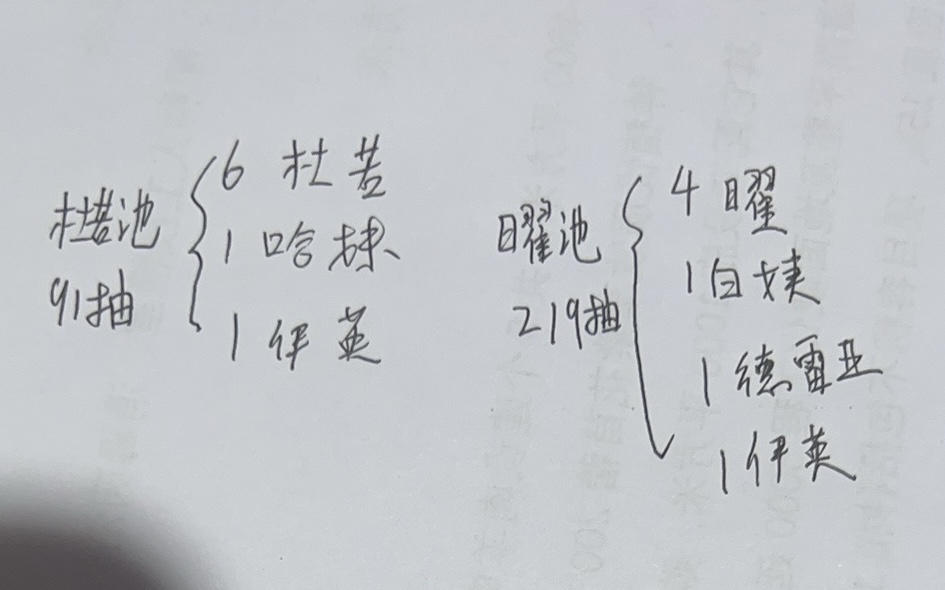 杜若池
91抽
6 杜若
1 哈妹
1 伊英
曜池
219抽
4 曜
1 白姨
1 德雷亚
1 伊英